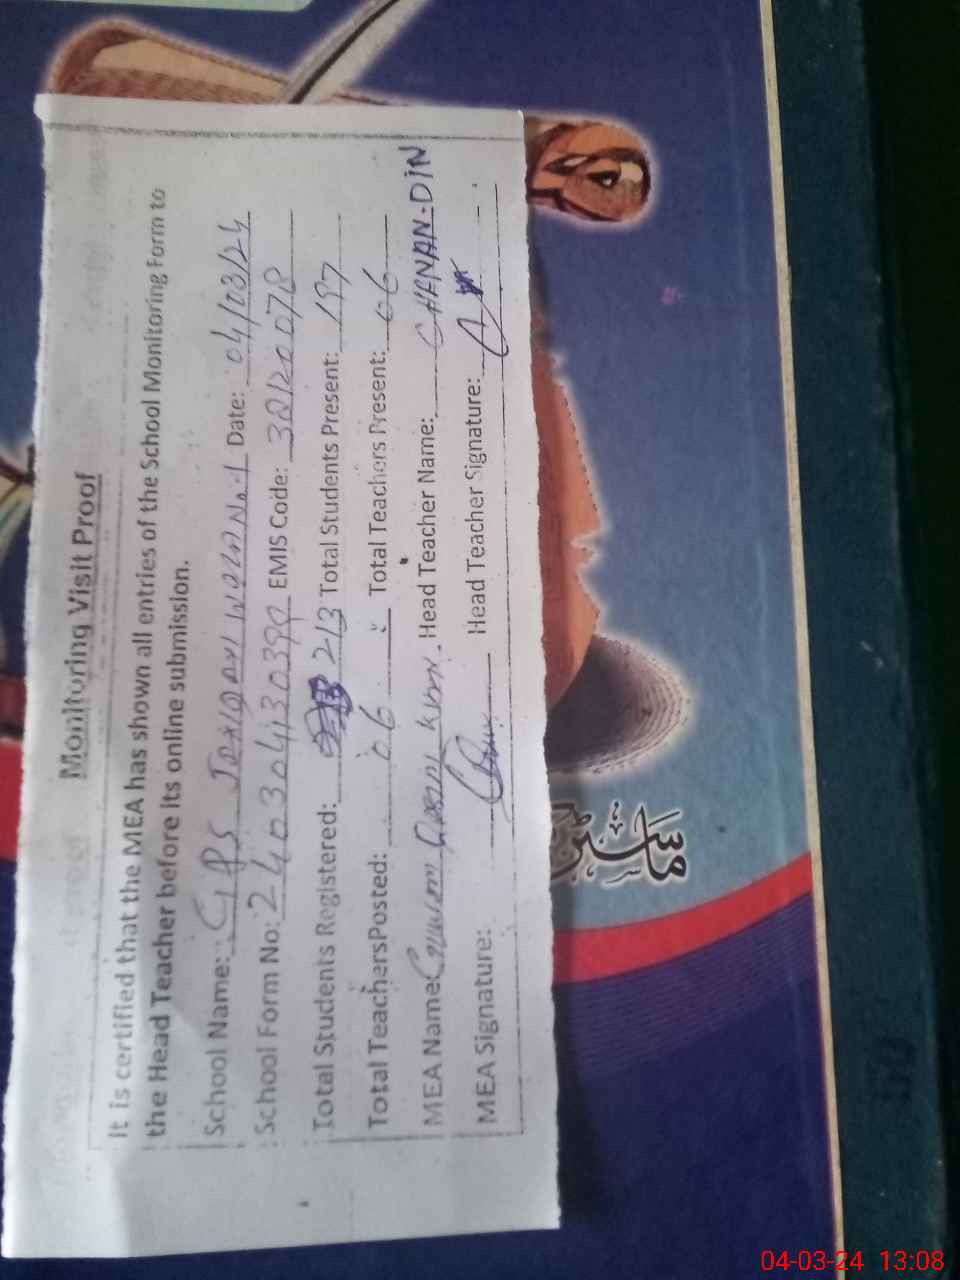 Monitoring Visit Proof
It is certified that the MEA has shown all entries of the School Monitoring Form to
the Head Teacher before its online submission.
School Name: GPS No.1 Date: 04/03/24
School Form No: 2403043039 EMIS Code: 32120078
Total Students Registered: 213 Total Students Present: 197
Total TeachersPosted: 06 Total Teachers Present: 06
MEA Name: Head Teacher Name: CHANAN-DIN
MEA Signature: Head Teacher Signature:
04-03-24 13:08